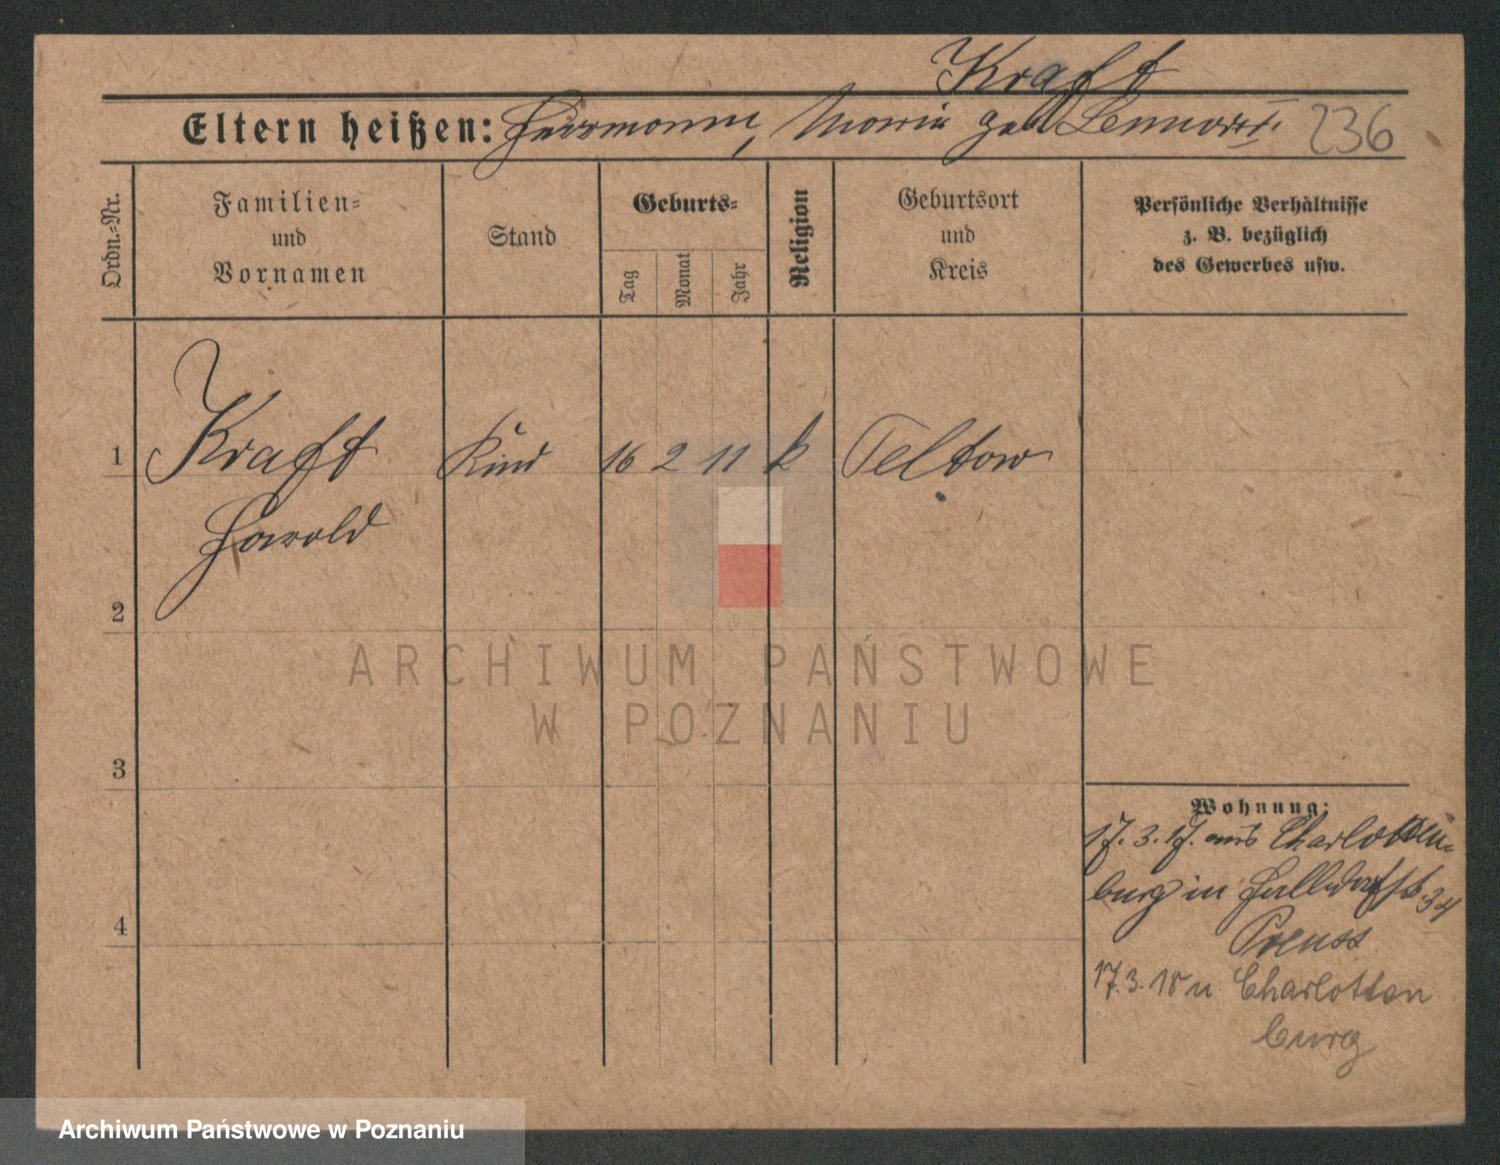 Kraft
Eltern heißen: Herrmann, Maria geb. Lennartt. 236
Ordn.-Nr.
Familien-
und
Vornamen
Stand
Geburts-
Tag
Monat
Jahr
Religion
Geburtsort
und
Kreis
Persönliche Verhältnisse
z. B. bezüglich
des Gewerbes usw.
1 Kraft Kind 16 2 11 k Teltow
Harold
2
ARCHIWUM PAŃSTWOWE
W POZNANIU
3
Wohnung:
17. 3. 17. aus Charlotten-
burg in 34
4
Preuss
17. 3. 18 n. Charlotten
burg
Archiwum Państwowe w Poznaniu